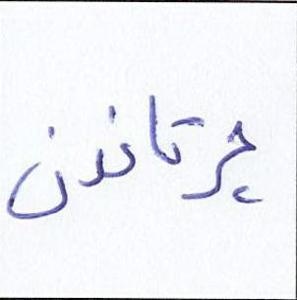 چرتاندن